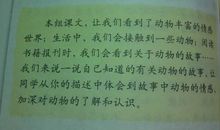 本组课文，让我们看到了动物丰富的情感
世界；生活中，我们会接触到一些动物；阅读
书籍报刊时，我们会看到关于动物的故事……
我们来说一说自己知道的有关动物的故事，让
同学从你的描述中体会到故事中动物的情感，
加深对动物的了解和认识。